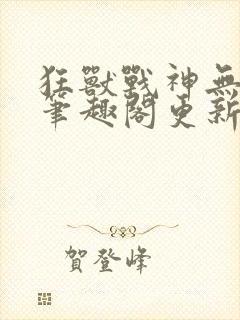 狂獸戰神無
筆趣閣更新
賀登峰